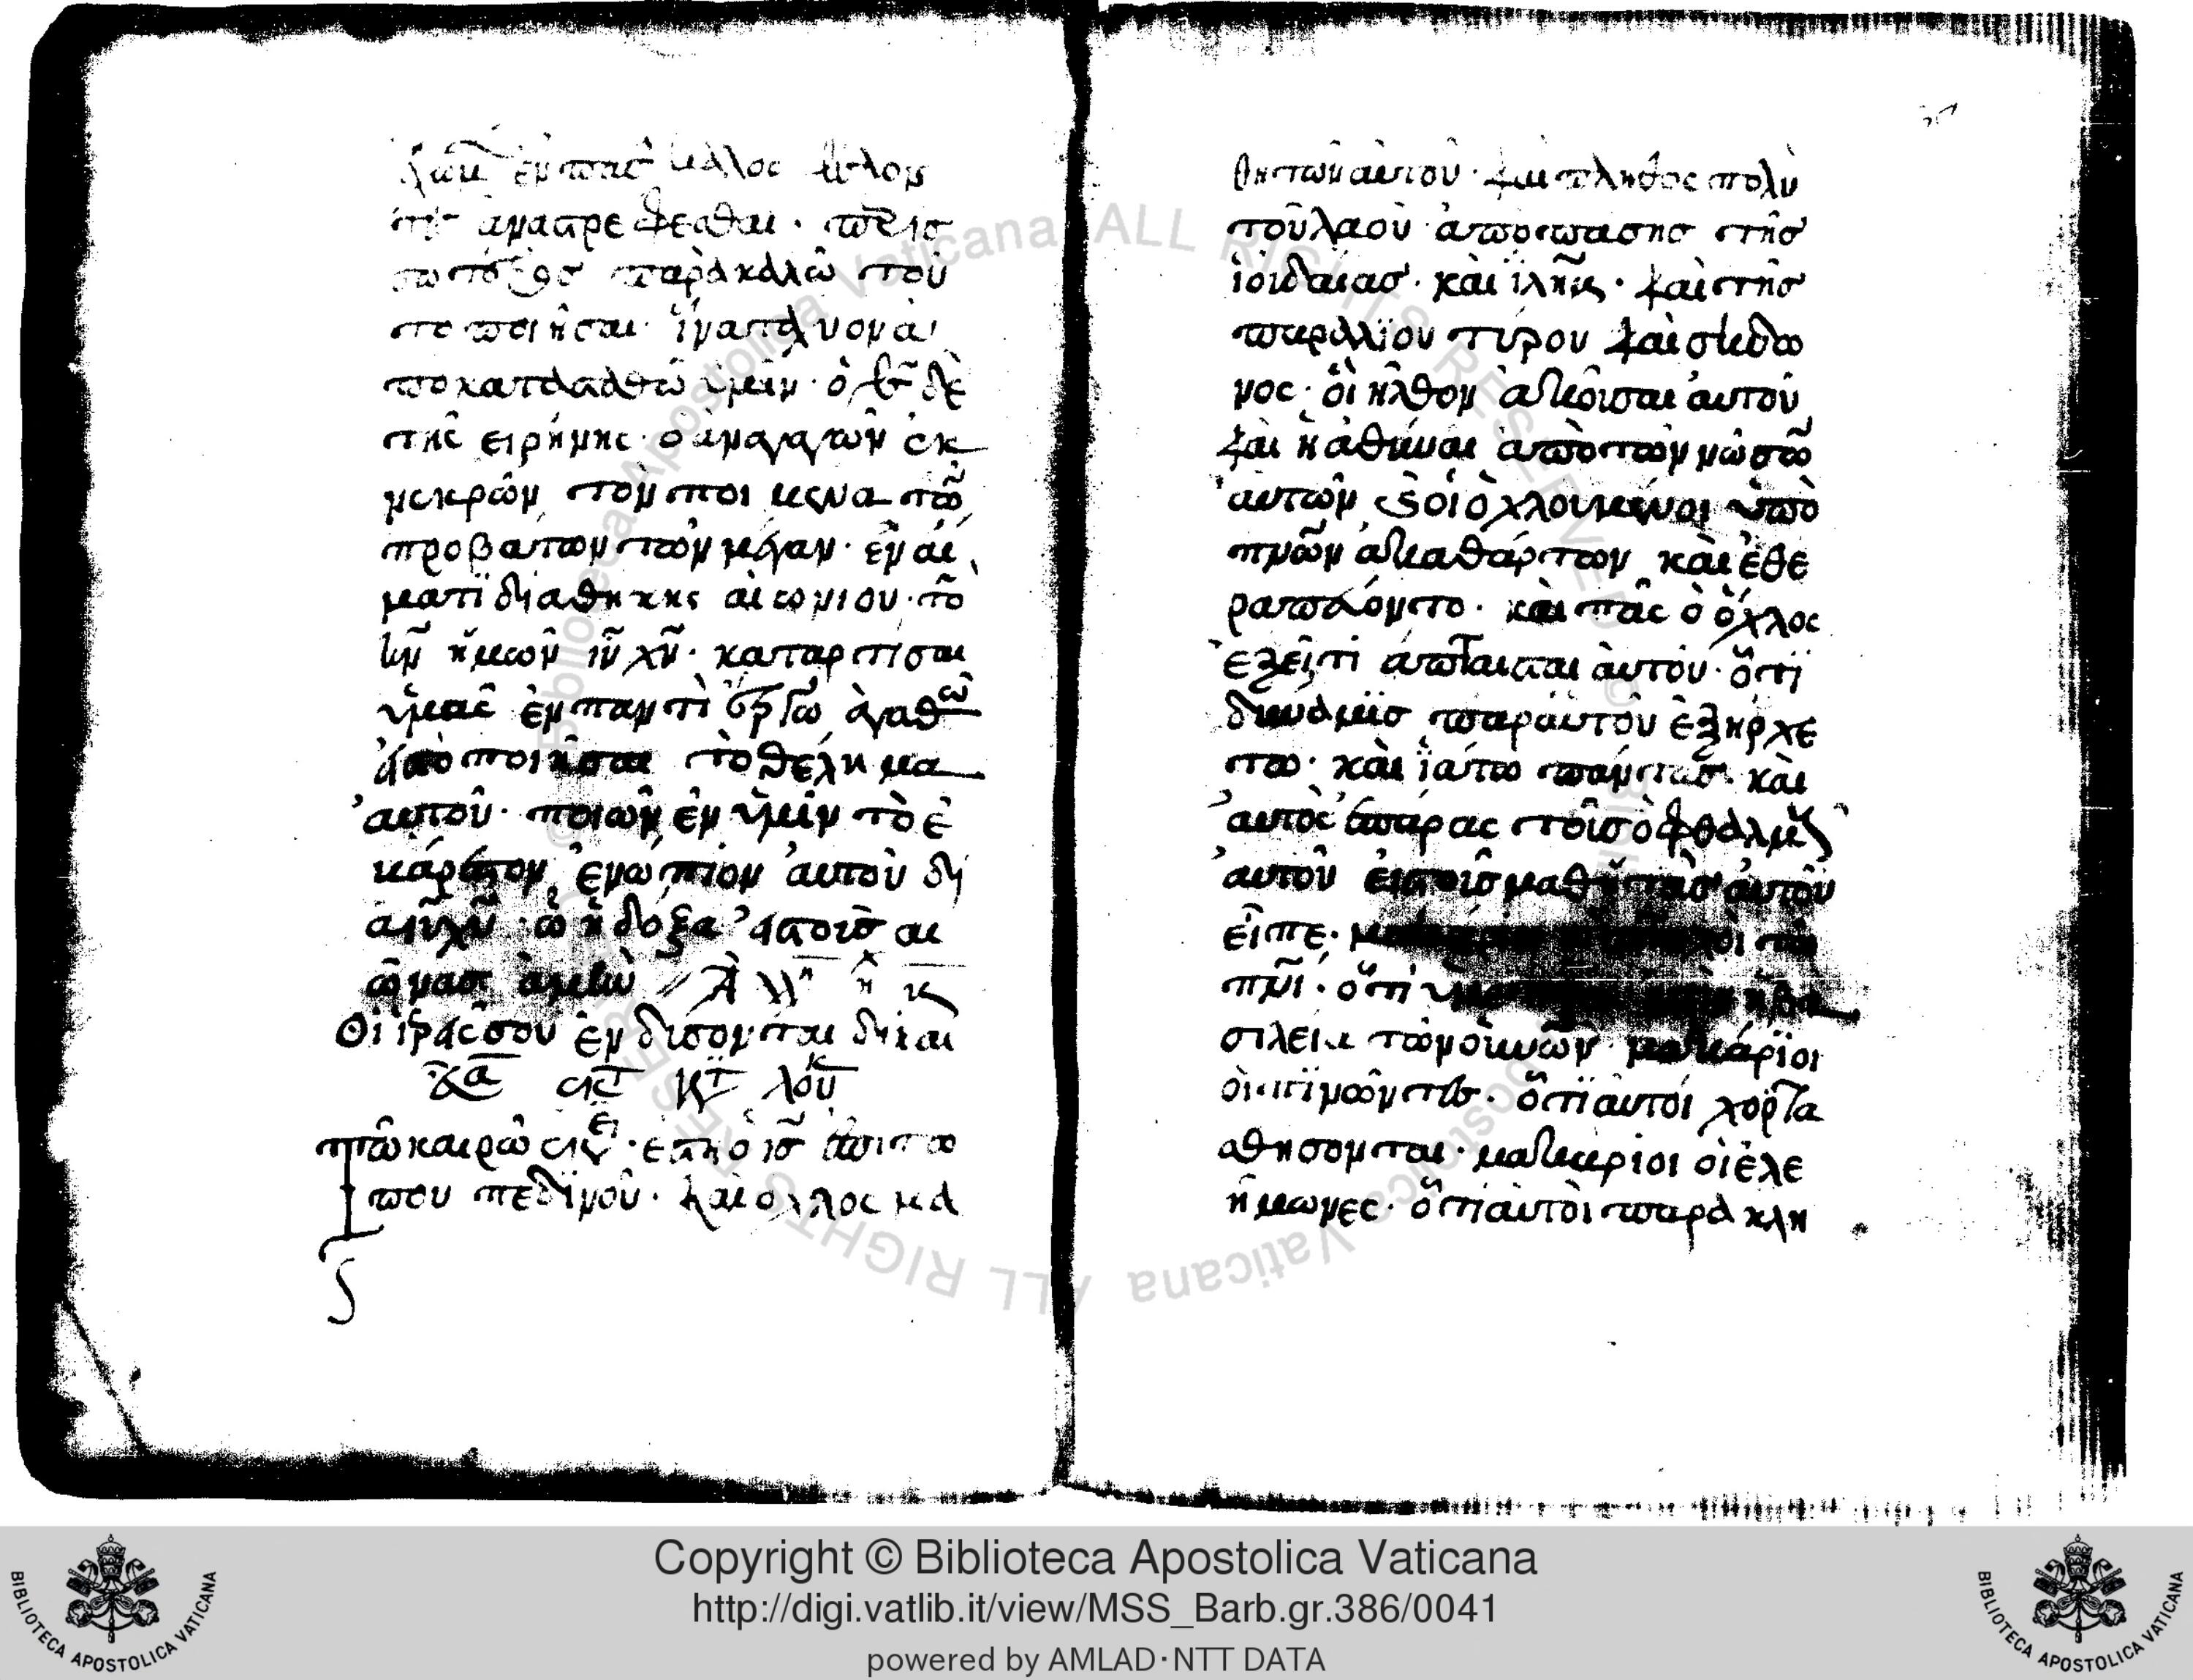 ἐν πᾶσι καλῶς θέλον
ἀναστρέφεσθαι
παρακαλῶ τοῦ
το ποιῆσαι· ἵνα
ποκατασταθῶ ὑμῖν· ὁ θς δὲ
τῆς εἰρήνης· ὁ ἀναγαγὼν ἐκ
νεκρῶν τὸν ποιμενα τῶ
προβάτων τὸν μέγαν· ἐν αἵ
ματι διαθήκης αἰωνίου· τὸ
κν ἡμῶν ιν χν· καταρτίσαι
ὑμᾶς ἐν παντὶ ἔργω ἀγαθῶ
ποιῆσαι τὸ θέλημα
αὐτοῦ· ποιῶν ἐν ὑμῖν τὸ ἐ
ἐνώπιον αὐτοῦ δι
α ιυ χυ· ὦ ἡ δόξα
ἀμήν
Οἱ ἱερεῖς σου ἐνδύσονται δικαι
ἐκ τ κτ λουκ
Τῶ καιρῶ ἐκει· ἔστη ὁ ις ἐπι το
που πεδινοῦ· καὶ ὄχλος μα
θητῶν αὐτοῦ· καὶ πλῆθος πολὺ
τοῦ λαοῦ ἀπὸ πάσης τῆς
ἰουδαίας· καὶ ιλημ· καὶ τῆς
παραλίου τύρου καὶ σιδω
νος· οἱ ἦλθον ἀκοῦσαι αὐτοῦ
καὶ ἰαθῆναι ἀπὸ τῶν νόσω
αὐτῶν καὶ οἱ ὀχλούμενοι ὑπὸ
πνῶν ἀκαθάρτων καὶ ἐθε
ραπεύοντο· καὶ πᾶς ὁ ὄχλος
ἐζείτι ἅπτεσται αὐτοῦ· ὅτι
δύναμις παρ αὐτοῦ ἐξήρχε
το· καὶ ἰάτω πάντας· καὶ
αὐτὸς ἐπάρας τοῖς ὀφθαλμοὺς
αὐτοῦ εἰς τοῖς μαθητὰς αὐτοῦ
εἶπε· οἱ πτωχοὶ τῶ
πνι· ὅτι βα
σιλεία τῶν οὐνῶν· μακάριοι
οἱ πινῶντες· ὅτι αὐτοὶ χορτα
σθήσονται· μακάριοι οἱ ἐλε
ήμωνες· ὅτι αὐτοὶ παρακλη
Copyright © Biblioteca Apostolica Vaticana
http://digi.vatlib.it/view/MSS_Barb.gr.386/0041
powered by AMLAD·NTT DATA